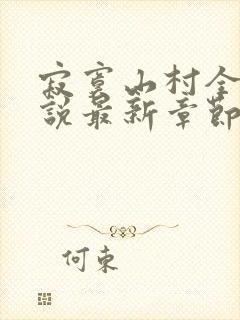 寂寞山村全
說最新章節
何東